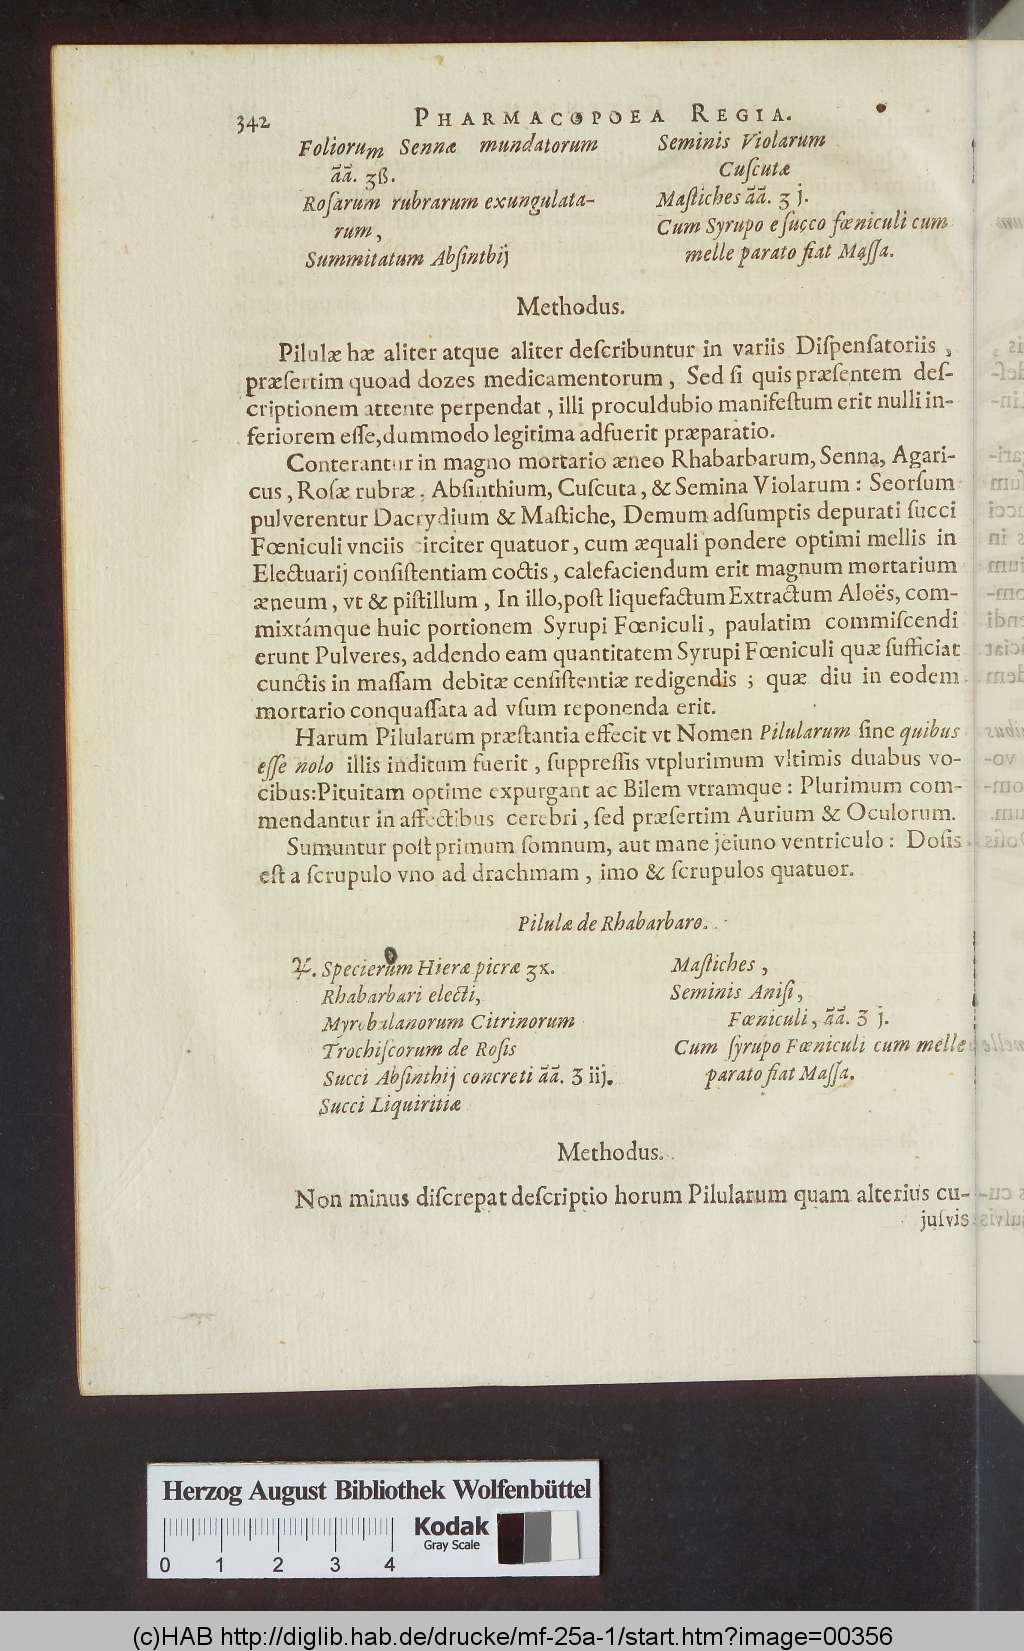 342 PHARMACOPOEA REGIA.
Foliorum Sennæ mundatorum
āā. ʒß.
Roſarum rubrarum exungulata-
rum,
Summitatum Abſinthij
Seminis Violarum
Cuſcutæ
Maſtiches āā. ʒ j.
Cum Syrupo e ſucco fœniculi cum
melle parato fiat Maſſa.
Methodus.
Pilulæ hæ aliter atque aliter deſcribuntur in variis Diſpenſatoriis,
præſertim quoad dozes medicamentorum, Sed ſi quis præſentem deſ-
criptionem attente perpendat, illi proculdubio manifeſtum erit nulli in-
feriorem eſſe, dummodo legitima adfuerit præparatio.
Conterantur in magno mortario æneo Rhabarbarum, Senna, Agari-
cus, Roſæ rubræ, Abſinthium, Cuſcuta, & Semina Violarum: Seorſum
pulverentur Dacrydium & Maſtiche, Demum adſumptis depurati ſucci
Fœniculi vnciis circiter quatuor, cum æquali pondere optimi mellis in
Electuarij conſiſtentiam coctis, calefaciendum erit magnum mortarium
æneum, vt & piſtillum, In illo, poſt liquefactum Extractum Aloës, com-
mixtámque huic portionem Syrupi Fœniculi, paulatim commiſcendi
erunt Pulveres, addendo eam quantitatem Syrupi Fœniculi quæ ſufficiat
cunctis in maſſam debitæ cenſiſtentiæ redigendis; quæ diu in eodem
mortario conquaſſata ad vſum reponenda erit.
Harum Pilularum præſtantia effecit vt Nomen Pilularum ſine quibus
eſſe nolo illis inditum fuerit, ſuppreſſis vtplurimum vltimis duabus vo-
cibus: Pituitam optime expurgant ac Bilem vtramque: Plurimum com-
mendantur in affectibus cerebri, ſed præſertim Aurium & Oculorum.
Sumuntur poſt primum ſomnum, aut mane jeiuno ventriculo: Doſis
eſt a ſcrupulo vno ad drachmam, imo & ſcrupulos quatuor.
Pilulæ de Rhabarbaro.
℞. Specierum Hieræ picræ ʒx.
Rhabarbari electi,
Myrobalanorum Citrinorum
Trochiſcorum de Roſis
Succi Abſinthij concreti āā. ʒ iij.
Succi Liquiritiæ
Maſtiches,
Seminis Aniſi,
Fœniculi, āā. ʒ j.
Cum ſyrupo Fœniculi cum melle
parato fiat Maſſa.
Methodus.
Non minus diſcrepat deſcriptio horum Pilularum quam alterius cu-
juſvis
Herzog August Bibliothek Wolfenbüttel
Kodak
Gray Scale
0 1 2 3 4
(c)HAB http://diglib.hab.de/drucke/mf-25a-1/start.htm?image=00356